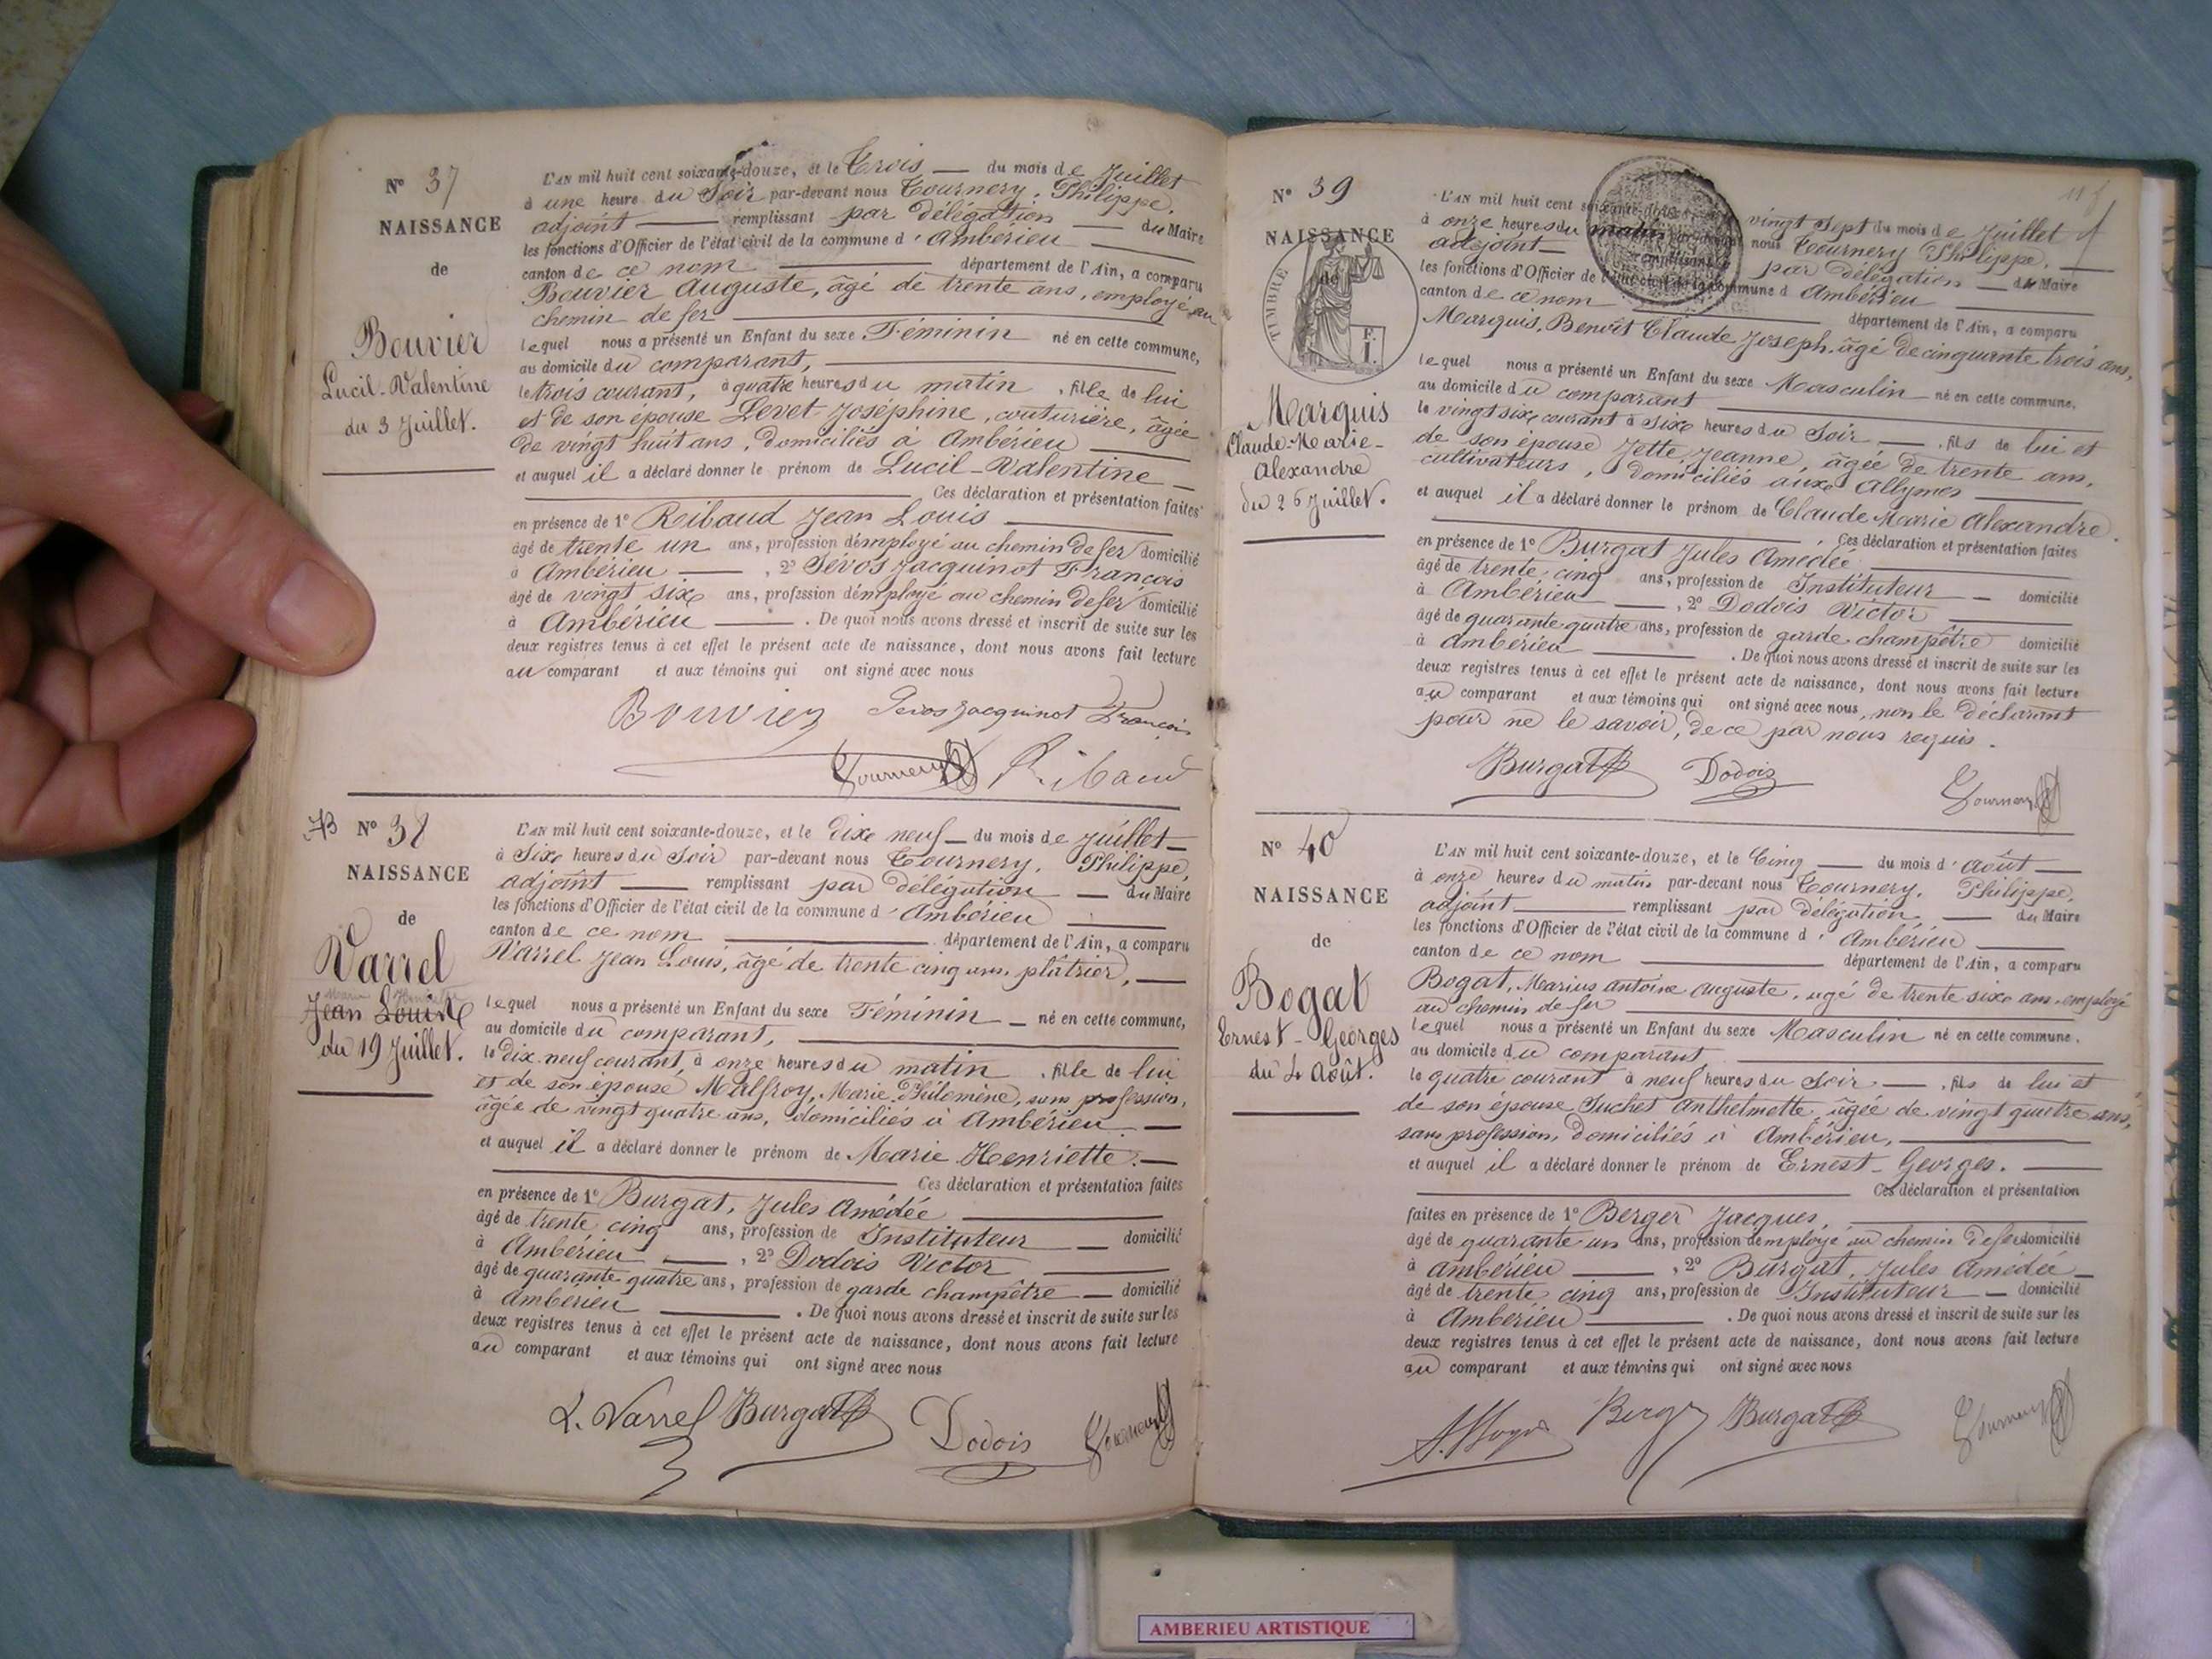 N° 37
NAISSANCE
de
Bouvier
Lucil-Valentine
du 3 Juillet.
L'AN mil huit cent soixante-douze, et le Trois — du mois de Juillet
à une heure du Soir par-devant nous Tournery, Philippe,
adjoint — remplissant par délégation — du Maire
les fonctions d'Officier de l'état civil de la commune d'Ambérieu
canton de ce nom — département de l'Ain, a comparu
Bouvier Auguste, âgé de trente ans, employé au
chemin de fer
lequel nous a présenté un Enfant du sexe Féminin né en cette commune,
au domicile du comparant,
le trois courant, à quatre heures du matin, fille de lui
et de son épouse Levet Joséphine, couturière, âgée
de vingt huit ans, domiciliés à Ambérieu
et auquel il a déclaré donner le prénom de Lucil-Valentine —
Ces déclaration et présentation faites
en présence de 1° Ribaud Jean Louis
âgé de trente un ans, profession d'employé au chemin de fer domicilié
à Ambérieu —, 2° Jacquinot François
âgé de vingt six ans, profession d'employé au chemin de fer domicilié
à Ambérieu —. De quoi nous avons dressé et inscrit de suite sur les
deux registres tenus à cet effet le présent acte de naissance, dont nous avons fait lecture
au comparant et aux témoins qui ont signé avec nous
Bouvier Jacquinot François
Tournery Ribaud
N° 38
NAISSANCE
de
Varrel
Marie Henriette
Jean Louise
du 19 Juillet.
L'AN mil huit cent soixante-douze, et le dix neuf — du mois de Juillet —
à Six heures du Soir par-devant nous Tournery, Philippe,
adjoint — remplissant par délégation — du Maire
les fonctions d'Officier de l'état civil de la commune d'Ambérieu
canton de ce nom — département de l'Ain, a comparu
Varrel Jean Louis, âgé de trente cinq ans, plâtrier, —
lequel nous a présenté un Enfant du sexe Féminin — né en cette commune,
au domicile du comparant,
le dix neuf courant, à onze heures du matin, fille de lui
et de son épouse Malfroy, Marie Philomène, sans profession,
âgée de vingt quatre ans, domiciliés à Ambérieu —
et auquel il a déclaré donner le prénom de Marie Henriette. —
Ces déclaration et présentation faites
en présence de 1° Burgat, Jules Amédée
âgé de trente cinq ans, profession de Instituteur — domicilié
à Ambérieu —, 2° Dodois Victor
âgé de quarante quatre ans, profession de garde champêtre — domicilié
à Ambérieu —. De quoi nous avons dressé et inscrit de suite sur les
deux registres tenus à cet effet le présent acte de naissance, dont nous avons fait lecture
au comparant et aux témoins qui ont signé avec nous
L. Varrel Burgat Dodois Tournery
N° 39
NAISSANCE
de
TIMBRE
Marquis
Claude-Marie-
Alexandre
du 26 Juillet.
L'AN mil huit cent soixante-douze, vingt sept du mois de Juillet
à onze heures du matin par-devant nous Tournery Philippe,
adjoint — remplissant par délégation — du Maire
les fonctions d'Officier de l'état civil de la commune d Ambérieu
canton de ce nom — département de l'Ain, a comparu
Marquis, Benoît Claude Joseph, âgé de cinquante trois ans,
lequel nous a présenté un Enfant du sexe Masculin — né en cette commune,
au domicile du comparant
le vingt six courant à Six heures du Soir —, fils de lui et
de son épouse Jette Jeanne, âgée de trente ans,
cultivateurs, domiciliés aux Allymes
et auquel il a déclaré donner le prénom de Claude Marie Alexandre.
Ces déclaration et présentation faites
en présence de 1° Burgat Jules Amédée
âgé de trente cinq ans, profession de Instituteur — domicilié
à Ambérieu —, 2° Dodois Victor
âgé de quarante quatre ans, profession de garde champêtre domicilié
à Ambérieu —. De quoi nous avons dressé et inscrit de suite sur les
deux registres tenus à cet effet le présent acte de naissance, dont nous avons fait lecture
au comparant et aux témoins qui ont signé avec nous, non le déclarant
pour ne le savoir, de ce par nous requis.
Burgat Dodois Tournery
N° 40
NAISSANCE
de
Bogat
Ernest-Georges
du 4 Août.
L'AN mil huit cent soixante-douze, et le Cinq — du mois d'août —
à onze heures du matin par-devant nous Tournery, Philippe,
adjoint — remplissant par délégation, — du Maire
les fonctions d'Officier de l'état civil de la commune d'Ambérieu
canton de ce nom — département de l'Ain, a comparu
Bogat, Marius antoine auguste, âgé de trente six ans, employé
au chemin de fer
lequel nous a présenté un Enfant du sexe Masculin né en cette commune,
au domicile du comparant
le quatre courant à neuf heures du Soir —, fils de lui et
de son épouse Suchet Anthelmette, âgée de vingt quatre ans,
sans profession, domiciliés à Ambérieu,
et auquel il a déclaré donner le prénom de Ernest-Georges. —
Ces déclaration et présentation
faites en présence de 1° Berger Jacques,
âgé de quarante un ans, profession d'employé au chemin de fer domicilié
à ambérieu —, 2° Burgat, Jules Amédée —
âgé de trente cinq ans, profession de Instituteur — domicilié
à Ambérieu —. De quoi nous avons dressé et inscrit de suite sur les
deux registres tenus à cet effet le présent acte de naissance, dont nous avons fait lecture
au comparant et aux témoins qui ont signé avec nous
Berger Burgat Tournery
AMBERIEU ARTISTIQUE